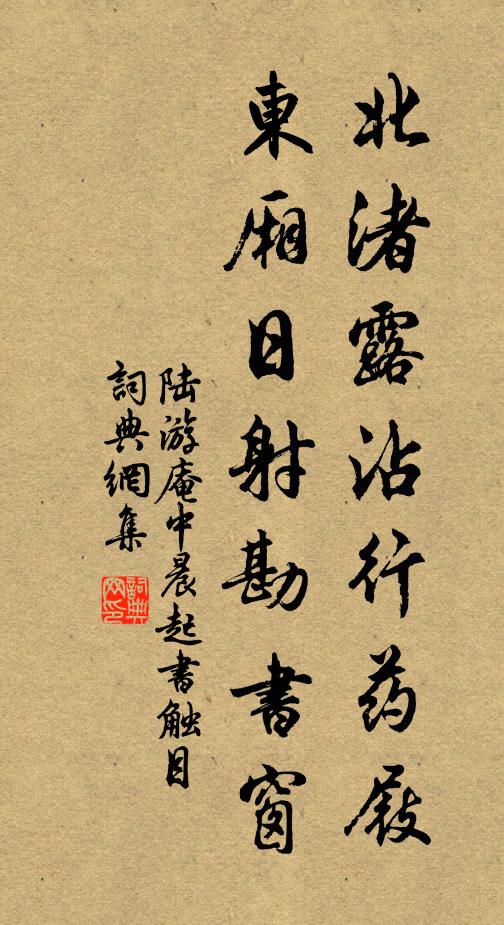 北渚露沾行药屐
東厢日射勘書窗
陆游庵中晨起書触目
詞典網集
詞典網印